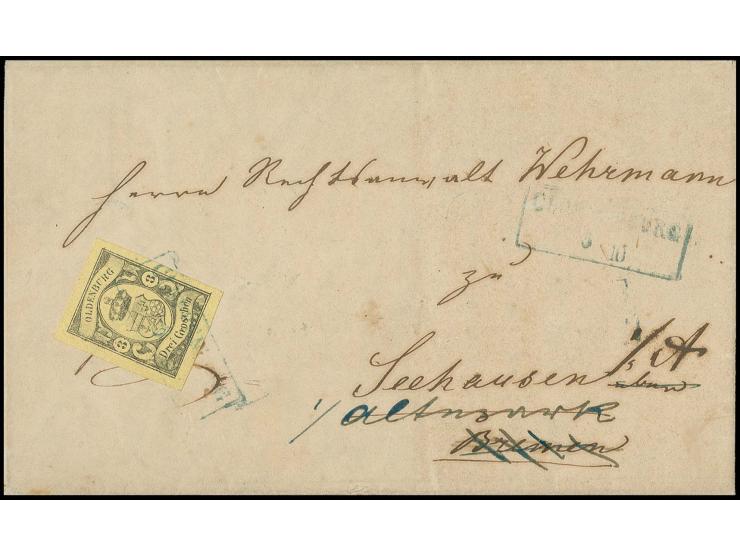 Herrn Rechtsanwalt Wehrmann
6 10
OLDENBURG
3 3
Drei Groschen
zu
Seehausen i/A
i/ Altmark
Bremen